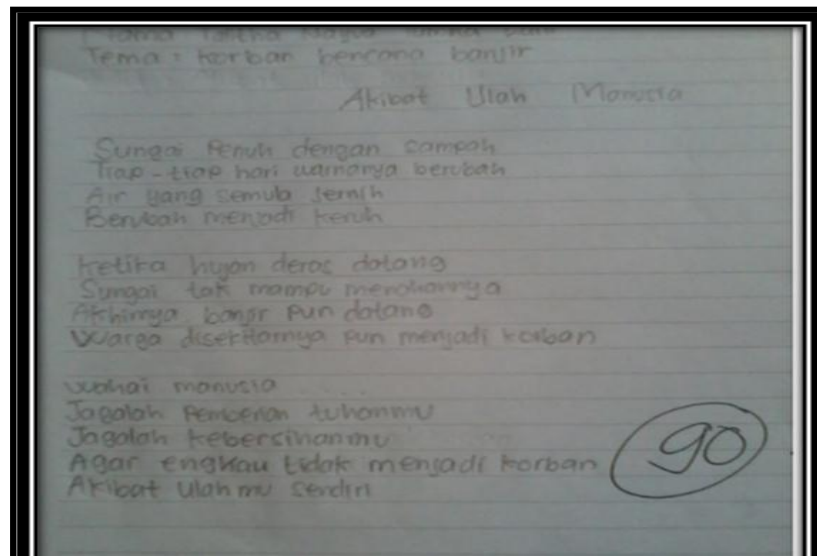 Nama
Tema : korban bencana banjir
Akibat Ulah Manusia
Sungai Penuh dengan sampah
Tiap-tiap hari warnanya berubah
Air yang semula jernih
Berubah menjadi keruh
Ketika hujan deras datang
Sungai tak mampu menahannya
Akhirnya banjir pun datang
Warga disekitarnya pun menjadi korban
Wahai manusia ....
Jagalah Pemberian tuhanmu
Jagalah kebersihanmu
Agar engkau tidak menjadi korban
Akibat Ulahmu Sendiri
90